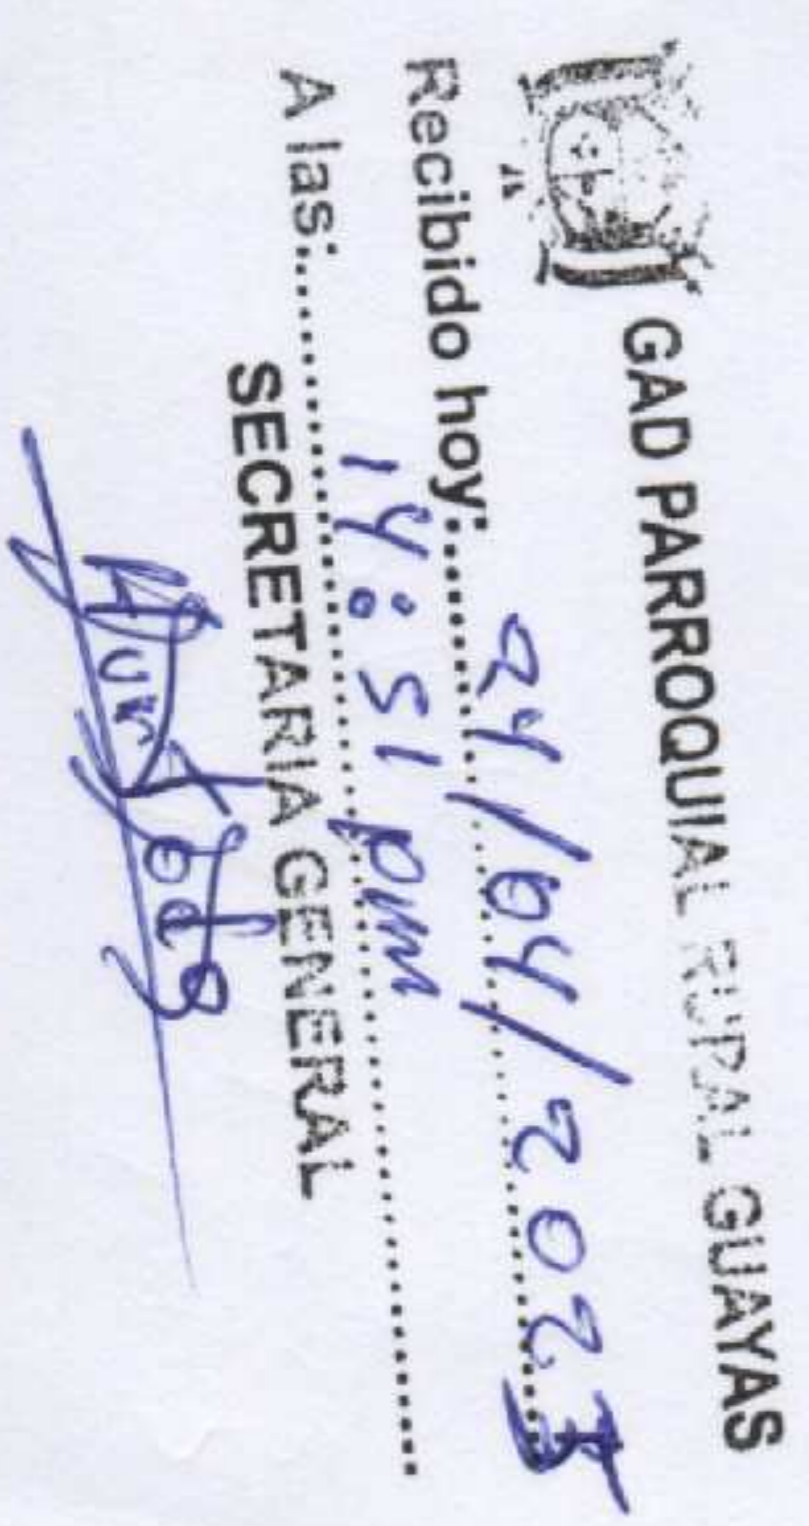 GAD PARROQUIAL RURAL GUAYAS
Recibido hoy:........ 24/04/2023
A las:........ 14:51 pm
SECRETARIA GENERAL